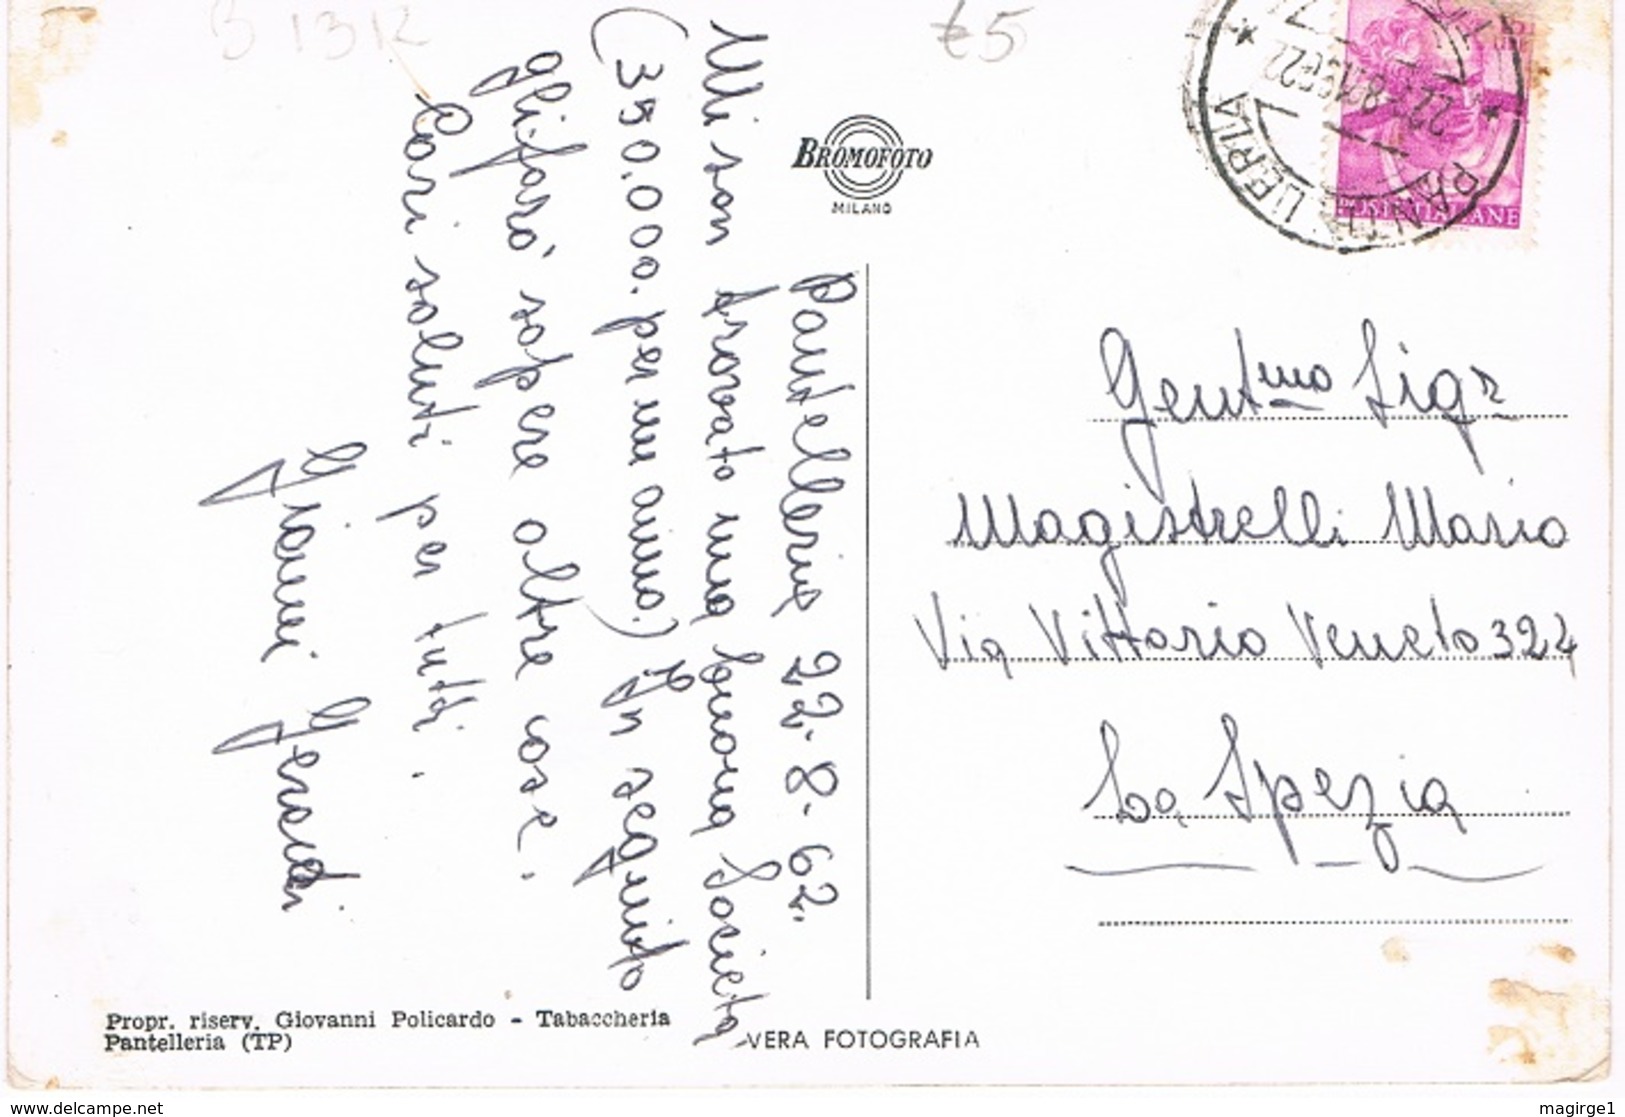 B 13 K
£5
BROMOFOTO
MILANO
PANTELLERIA
22.8.1962.22
POSTE ITALIANE
Pantelleria 22-8-62.
Mi son trovato una buona Società
(350.000. per un anno.) In seguito
gli farò sapere altre cose.
Cari saluti per tutti.
Gianni
Gent.mo Sigr
Magistrelli Mario
Via Vittorio Veneto 324
La Spezia
Propr. riserv. Giovanni Policardo - Tabaccheria
Pantelleria (TP)
VERA FOTOGRAFIA
www.delcampe.net
magirge1